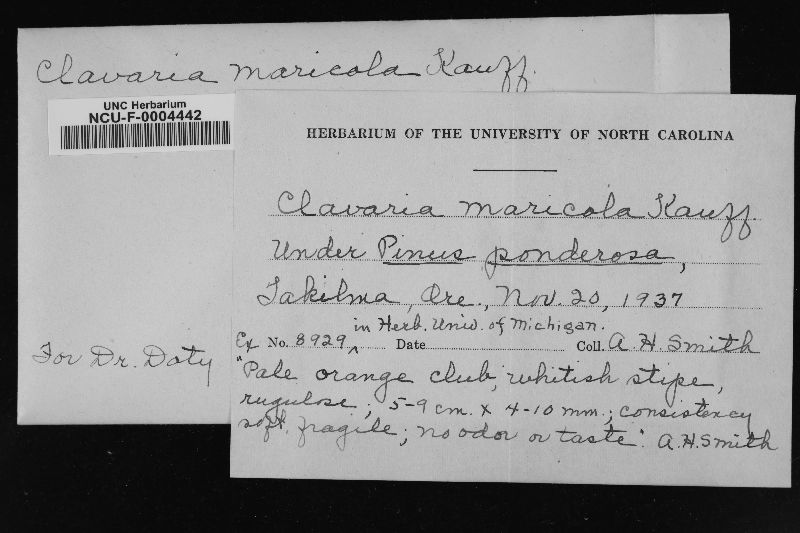 Clavaria maricola Kauff.
UNC Herbarium
NCU-F-0004442
For Dr. Doty
HERBARIUM OF THE UNIVERSITY OF NORTH CAROLINA
Clavaria maricola Kauff.
Under Pinus ponderosa,
Takilma, Ore., Nov. 20, 1937
in Herb. Univ. of Michigan.
Ex No. 8929 ^ Date Coll. A H Smith
"Pale orange club, whitish stipe,
rugulose; 5-9 cm. x 4-10 mm.; consistency
soft, fragile; no odor or taste". A.H. Smith